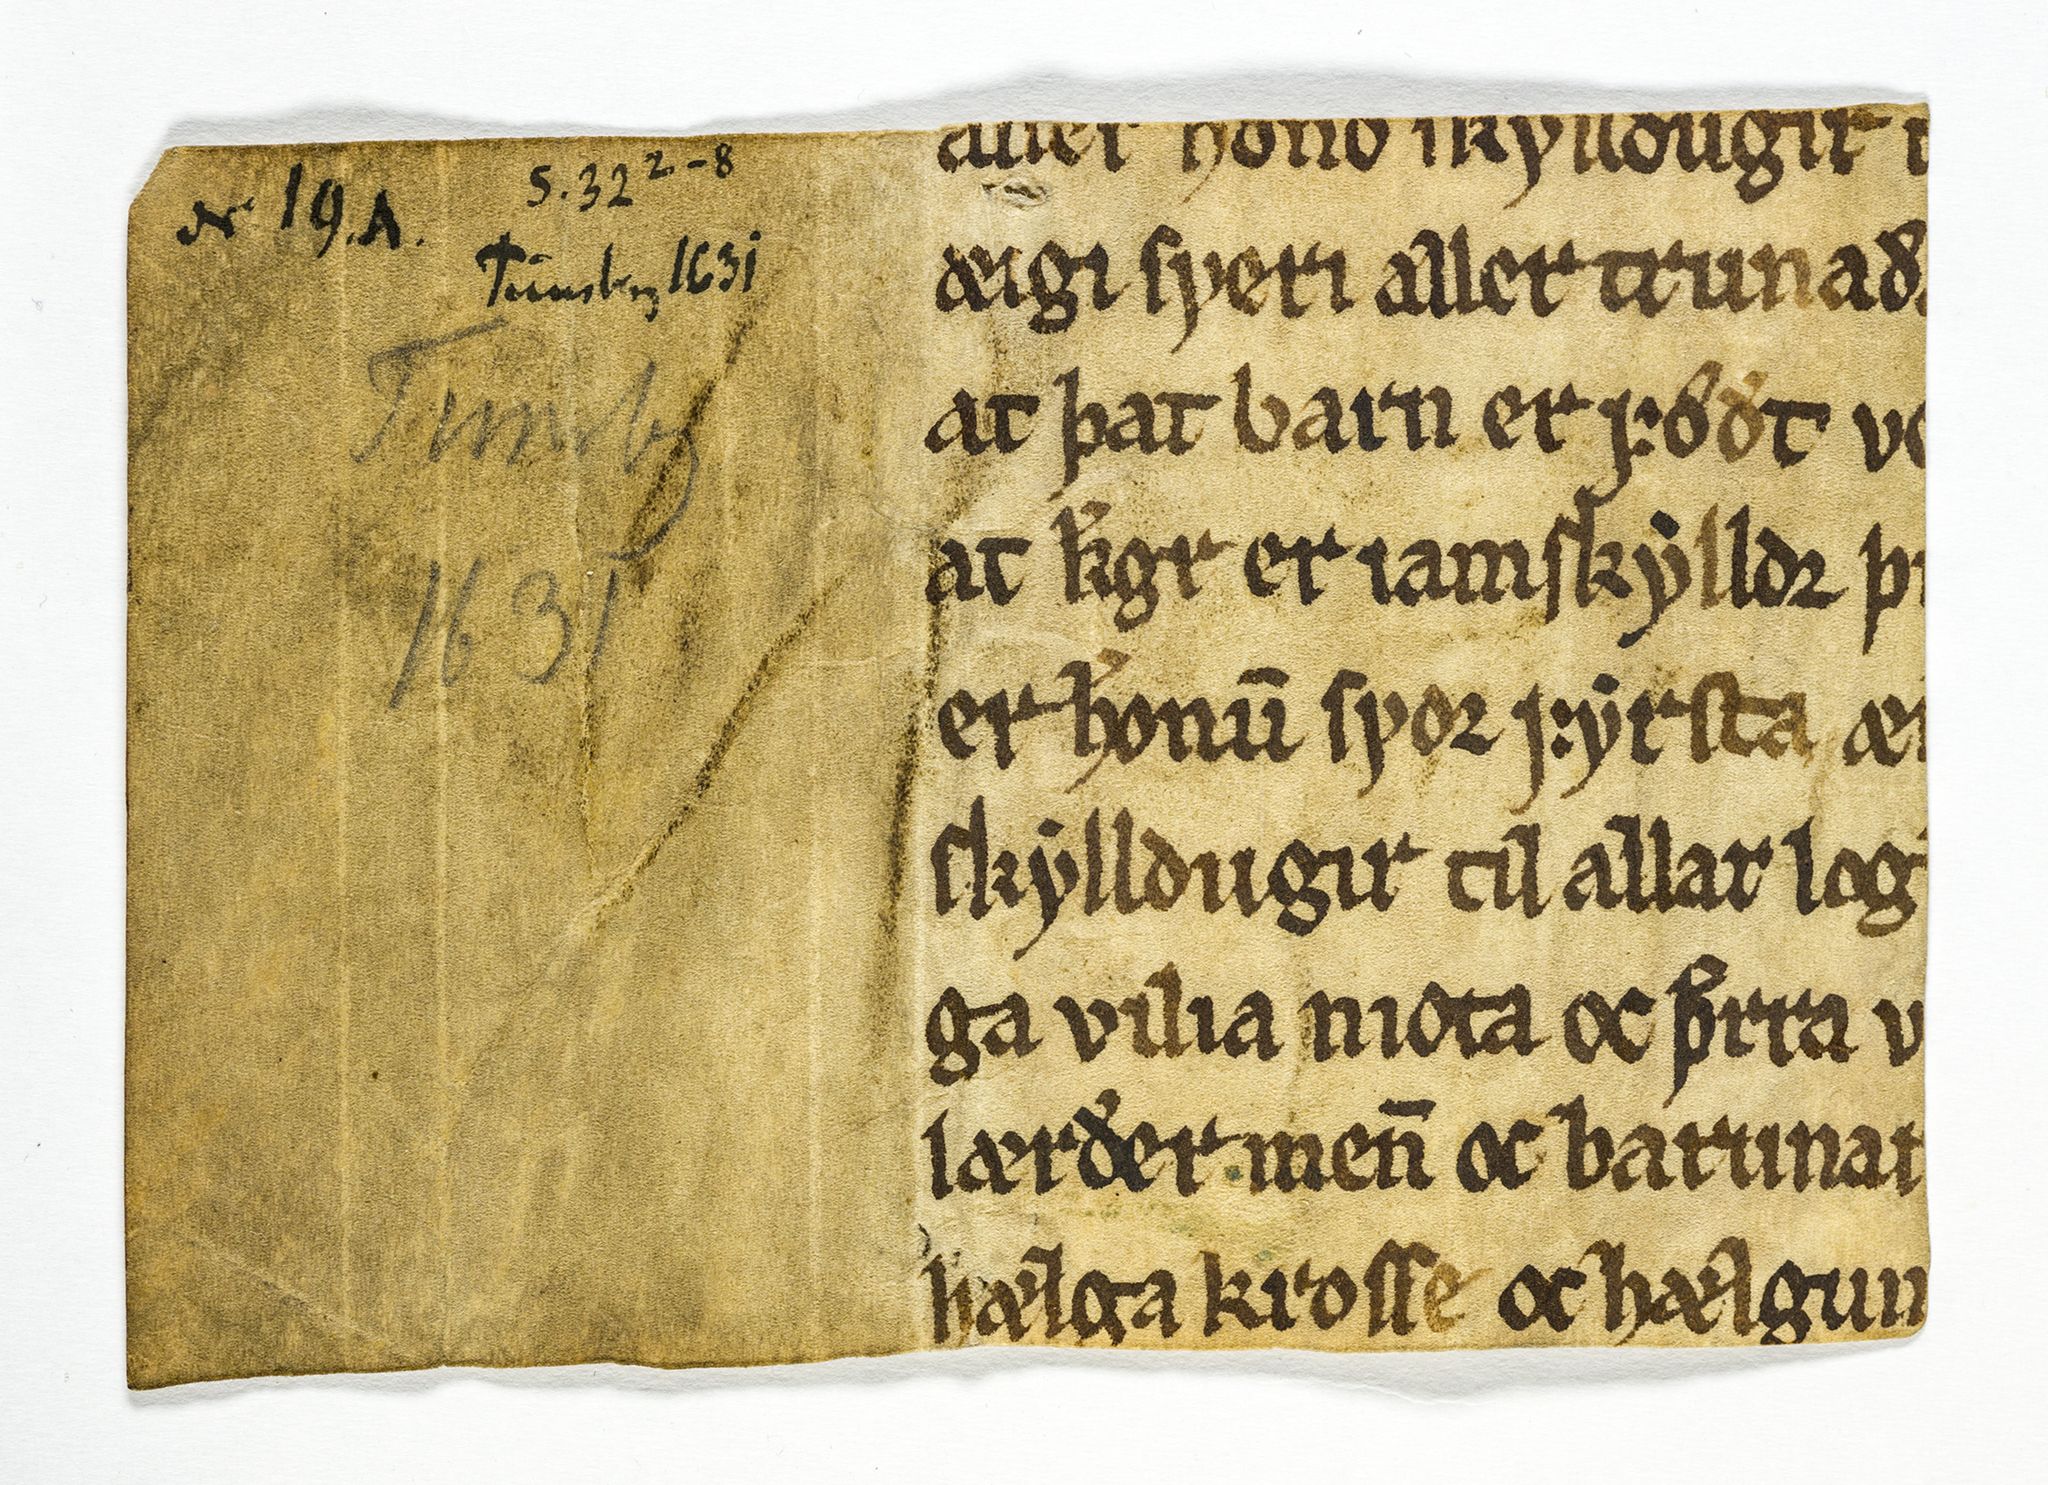 Nr 19.A.
S. 32 2-8
Tunsberg 1631
Tunsb
1631
aller hond skylldugir t
æigi spyeri aller trunaðꝛ
at þat barn er fǿðt vo
at kgr er iamskẏlldꝛ þi
er honū spyoꝛ fẏrsta æi
skẏlldugir til allar log
ga vilia niota oc þirra v
lærðer men̄ oc barrunat
hælga krosse oc hælgun